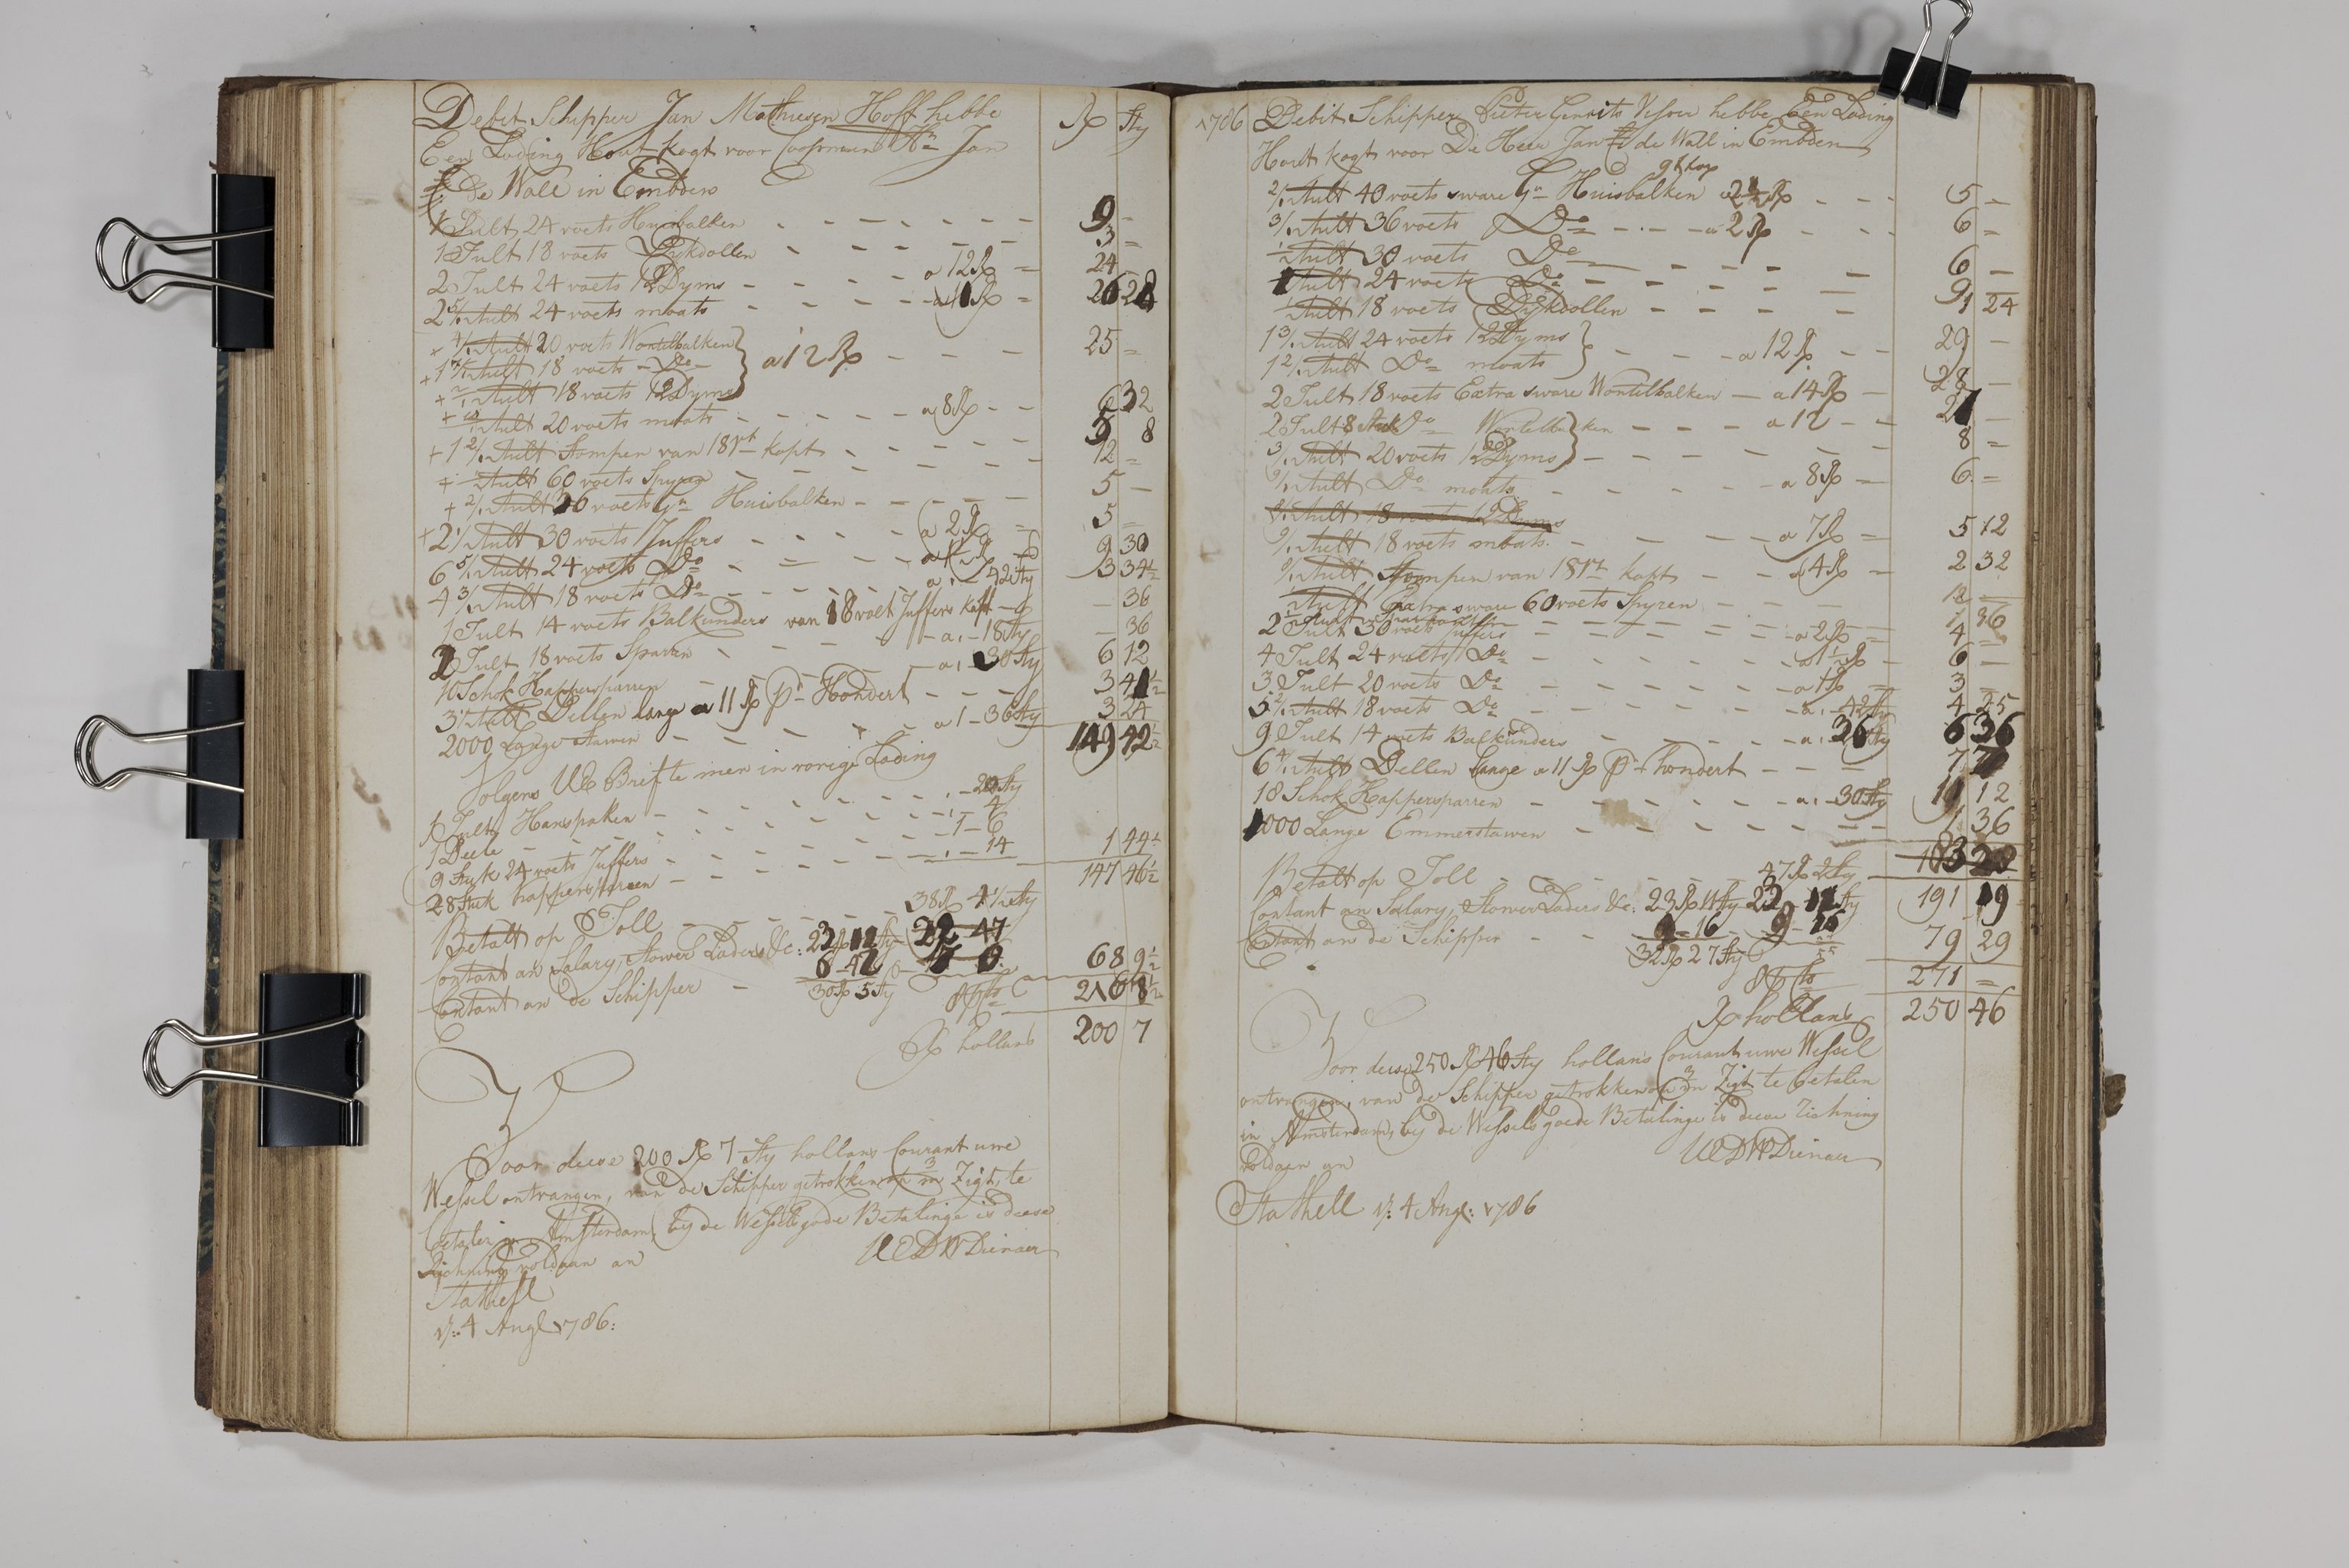 Debet Schipper Jan Mathiesen Hoff hebbe Rß Sty
Een Lading Hout kogt voor Coopman Hr Jan
de Wall in Embden
1 Tult 24 voets Huisbalken 9 -
1 Tult 18 voets Dykdollen 3 =
2 Tult 24 voets 12 Dyms a 12 Rß = 24
2 5/. Tult 24 voets moats
4/. Tult 20 voets Wontelbalken
18 voets Do
Tult 18 voets 12 Dyms
a 12 Rß 25 =
Tult 20 voets moats a 8 Rß 6 32
+ 1 2/. Tult Stompen van 18 vt kapt 5 8
+ Tult 60 voets Spyren 12 =
+ 2/. Tult 36 voets Gn Huisbalken 5 -
+ 2 1/. Tult 30 voets Juffers a 2 Rß = 5 =
6 5/. Tult 24 voets Do 9 30
4 3/. Tult 18 voets Do a . 42 Sty 3 34 1/2
1 Tult 14 voets Balkunders van 18 voet Juffers kapt - 36
2 Tult 18 voets Sparren a . - 18 Sty - 36
10 Schok Happersparren a . - 30 Sty 6 12
3 Tult Dellen lange a 11 Rß pr Hondert 3 41 1/2
2000 Lange stawen a 1 - 36 Sty 3 24
149 42 1/2
Volgens UE Brif te men in vorige Lading
1 Tult Hanspaken . - 20 Sty
1 Deele . - 4
9 Styk 24 voets Juffers 1 - 6
28 Stuk happersparren . - 14 1 44
147 46 1/2
Betalt op Toll 38 Rß 4 1/2 Sty
Contant an Salary, Stower Laders &c: 23 Rß 11 Sty 22 47
Contant an de Schipper 6 - 42 68 9 1/2
30 Rß 5 Sty 216 8 1/2
Rß hollans 200 7
Voor diese 200 Rß 7 Sty hollans Courant uwe
Wessel ontvangen, van de Schipper getrokken op 3/m Zigt, te
betalen in Amsterdam, by de Wessels goede Betalinge is diese
Richning voldaan an UEDWDienaer
Stathell
d: 4 Augl 1786:
1786 Debit Schipper Pieter Gerrits Visser hebbe Een Lading
Hout kogt voor De Heer Jan de Wall in Embden
2/. Tult 40 voets sware Gn Huisbalken a 2 1/2 Rß 5 -
3/. Tult 36 voets Do a 2 Rß 6 =
Tult 30 voets Do 6 -
1 Tult 24 voets Do 9 -
Tult 18 voets Dykdollen 1 24
1 3/. Tult 24 voets 12 Dyms
1 2/. Tult Do moats
a 12 Rß 29 -
2 Tult 18 voets Extra sware Wontelbalken - a 14 Rß - 28 -
2 Tult 8 Stuk Do Wontelbalken a 12 - 27 -
3/. Tult 20 voets 12 Dyms 8 =
9/. Tult Do moats a 8 Rß = 6 =
Tult 18 voets 12 Dyms
9/. Tult 18 voets moats a 7 Rß = 5 12
9/. Tult Stompen van 18 vt kapt a 4 Rß = 2 32
Tult Extra sware 60 voets Spyren
1 36
2 Tult 30 voets Juffers a 2 Rß = 4 =
4 Tult 24 voets Do a 1 1/2 Rß - 6 -
3 Tult 20 voets Do a 1 Rß - 3 -
5 2/. Tult 18 voets Do a . - 42 Sty 4 25
9 Tult 14 voets Balkunders a . 36 Sty 6 36
6 4/. Tult Dellen lange a 11 Rß pr hondert 7
18 Schok Happersparren a . - 30 Sty 11 12
1000 Lange Emmerstawen 1 36
183
Betalt op Toll 47 Rß 2 Sty 191 19
Contant an Salary, Stower Laders &c: 23 Rß 11 Sty
Contant an de Schipper 9 - 16 79 29
32 Rß 27 Sty 271 =
Rß hollans 250 46
Voor diese 250 Rß 46 Sty hollans Courant uwe Wessel
ontvangen, van de Schipper getrokken op 3/m Zigt te betalen
in Amsterdam, by de Wessels goede Betalinge is diese Richning
voldaan an UEDWDienaer
Stathell d: 4 Augl: 1786